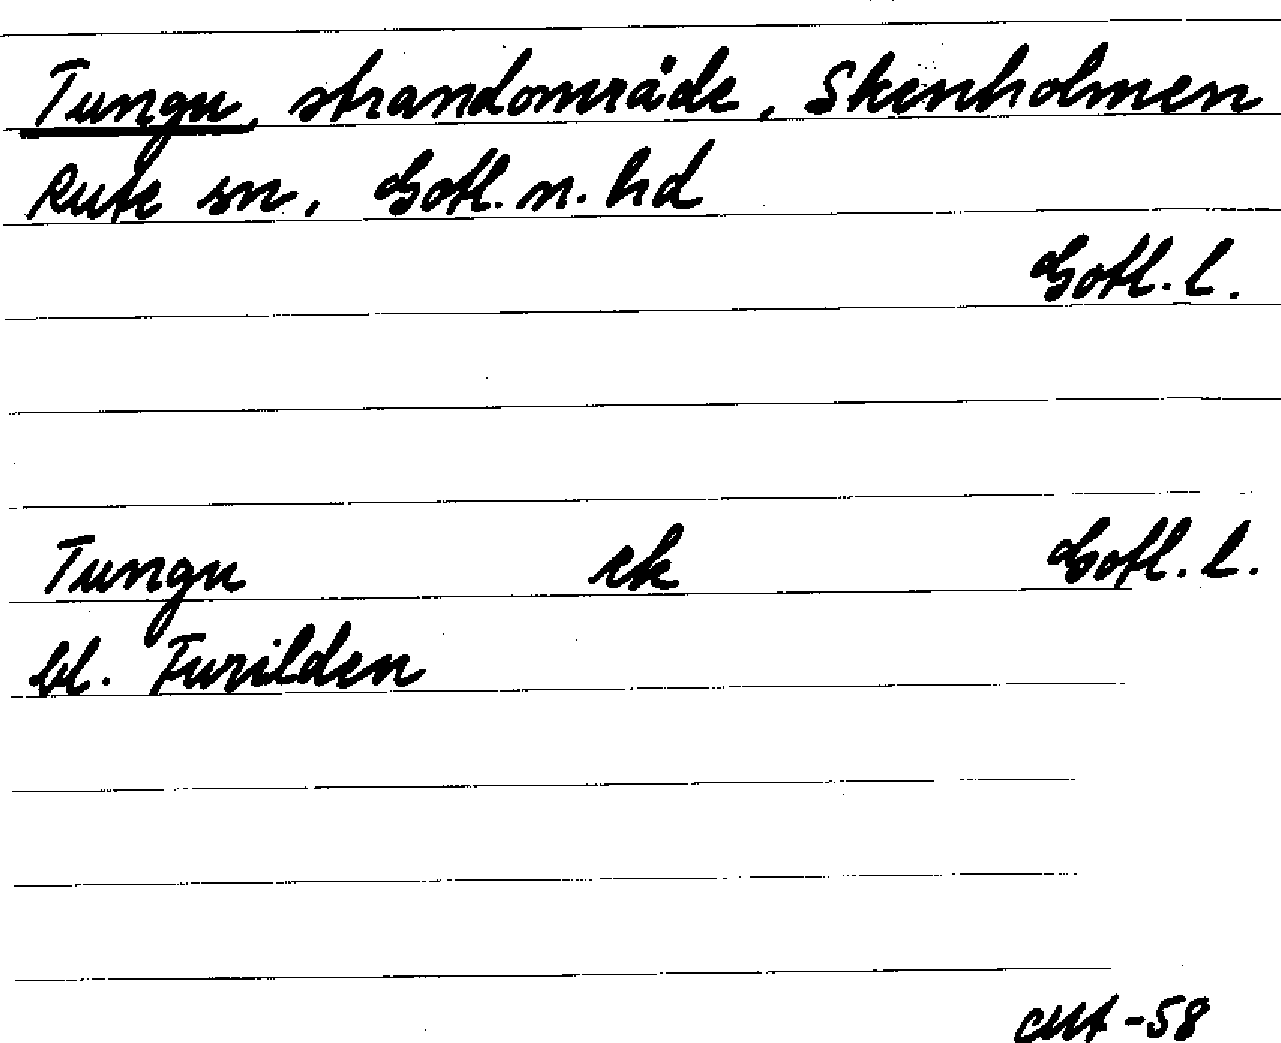 Tungu, strandområde, Skenholmen
Rute sn, Gotl. n. hd
Gotl. l.
Tungu ek Gotl. l.
bl. Furilden
-58